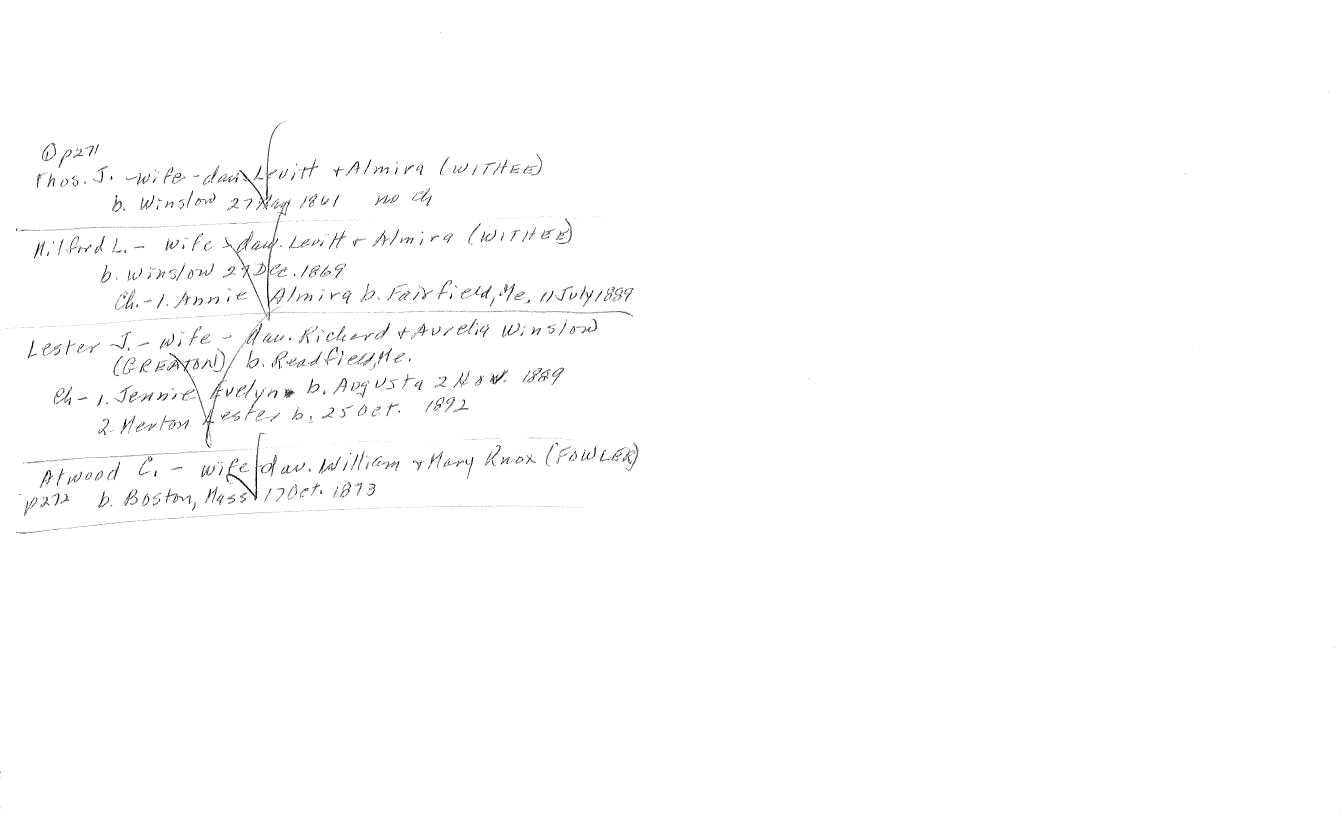 ① p271
Thos. J. - wife - dau. Levitt + Almira (WITHEE)
b. Winslow 27 May 1861 no ch
Milford L. - wife - dau. Levitt + Almira (WITHEE)
b. Winslow 27 Dec. 1869
Ch. - 1. Annie Almira b. Fairfield, Me. 11 July 1889
Lester J. - wife - dau. Richard + Aurelia Winslow
(GREATON) b. Readfield, Me.
Ch - 1. Jennie Evelyn b. Augusta 2 Nov. 1889
2. Merton Lester b. 25 Oct. 1892
Atwood C. - wife dau. William + Mary Knox (FOWLER)
p272 b. Boston, Mass 17 Oct. 1873